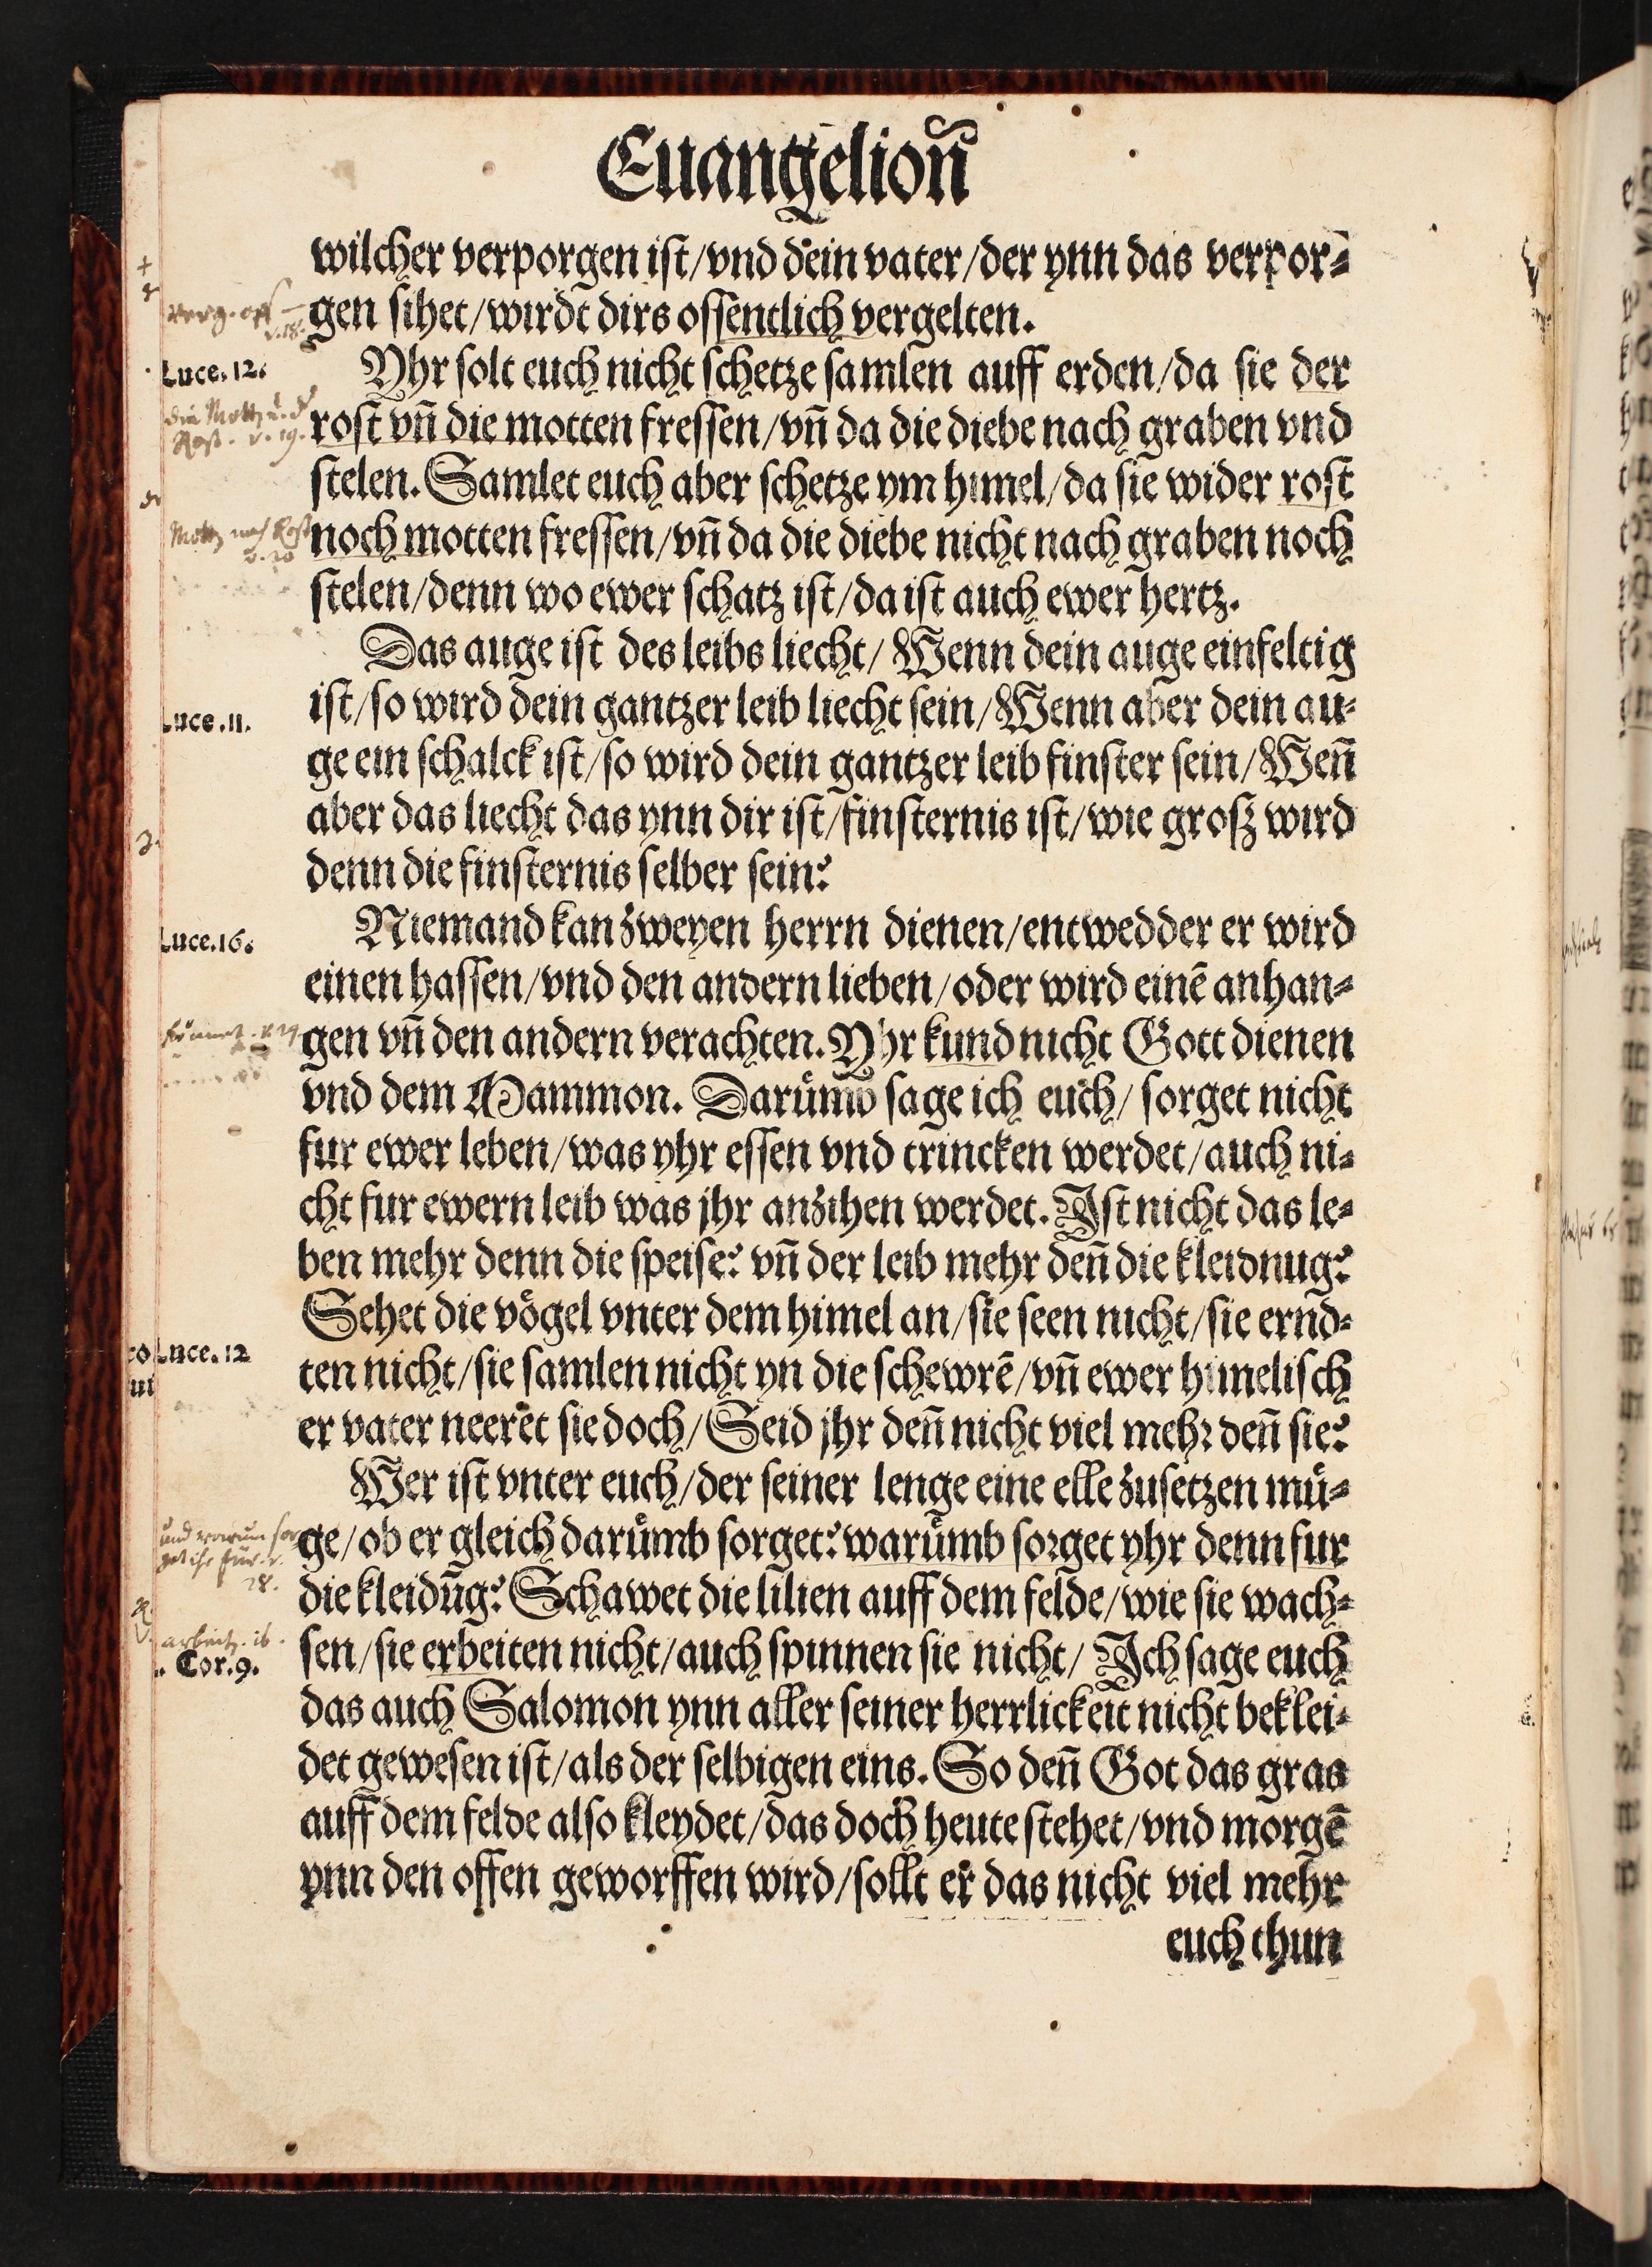 Euangelioñ
wilcher verporgen ist/vnd dein vater/der ynn das verpor⸗
gen sihet/wirdt dirs offentlich vergelten.
Luce.12.
Yhr solt euch nicht schetze samlen auff erden/da sie der
rost vñ die motten fressen/vñ da die diebe nach graben vnd
stelen. Samlet euch aber schetze ym himel/da sie wider rost
noch motten fressen/vñ da die diebe nicht nach graben noch
stelen/denn wo ewer schatz ist/da ist auch ewer hertz.
Das auge ist des leibs liecht/ Wenn dein auge einfeltig
Luce.11.
ist/so wird dein gantzer leib liecht sein/Wenn aber dein au⸗
ge ein schalck ist/so wird dein gantzer leib finster sein/Weñ
aber das liecht das ynn dir ist/finsternis ist/wie grosz wird
denn die finsternis selber sein?
Luce.16.
Niemand kan zweyen herrn dienen/entwedder er wird
einen hassen/vnd den andern lieben/oder wird einē anhan⸗
gen vñ den andern verachten. Yhr kund nicht Gott dienen
vnd dem Mammon. Darůmb sage ich euch/ sorget nicht
fur ewer leben/was yhr essen vnd trincken werdet/auch ni⸗
cht fur ewern leib was jhr anzihen werdet. Ist nicht das le⸗
ben mehr denn die speise? vñ der leib mehr deñ die kleidnug?
Sehet die vögel vnter dem himel an/sie seen nicht/sie ernd⸗
Luce.12
ten nicht/sie samlen nicht yn die schewrē/vñ ewer himelisch
er vater neeret sie doch/Seid jhr deñ nicht viel mehr deñ sie?
Wer ist vnter euch/der seiner lenge eine elle zusetzen mü⸗
ge/ob er gleich darůmb sorget? warůmb sorget yhr denn fur
die kleidūg? Schawet die lilien auff dem felde/wie sie wach⸗
sen/sie erbeiten nicht/auch spinnen sie nicht/ Ich sage euch
Cor.9.
das auch Salomon ynn aller seiner herrlickeit nicht beklei⸗
det gewesen ist/als der selbigen eins. So deñ Got das gras
auff dem felde also kleydet/das doch heute stehet/vnd morgē
ynn den offen geworffen wird/sollt er das nicht viel mehr
euch thun